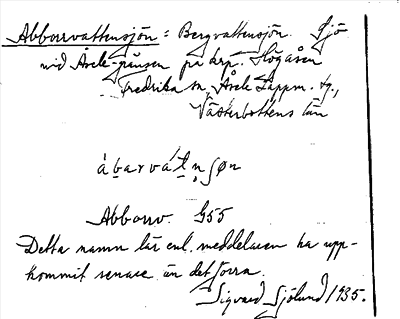 Abborrvattensjön = Bergvattensjön. Sjö
vid Åsele-gränsen pr krp. Högåsen
Fredrika sn, Åsele Lappm. tg.,
Västerbottens län
ábarvát̲n̥ʃøn
Abborrv. G55
Detta namn lär enl. meddelaren ha upp-
kommit senare än det förra.
Sigvard Sjölund 1935.